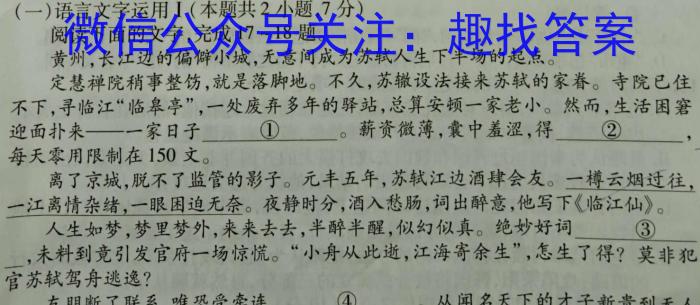 (一)语言文字运用Ⅰ(本题共2小题,7分)
微信公众号关注：趣找答案
阅读下面的文字,完成17～18题。
黄州,长江边的偏僻小城,无意间成为苏轼人生下半场的起点。
定慧禅院稍事整饬,就是落脚地。不久,苏辙设法接来苏轼的家眷。寺院已住
不下,寻临江“临皋亭”,一处废弃多年的驿站,总算安顿一家老小。然而,生活困窘
迎面扑来——一家日子 ① 。薪资微薄,囊中羞涩,得 ② ,
每天零用限制在150文。
离了京城,脱不了监管的影子。元丰五年,苏轼江边酒肆会友。一樽云烟过往,
一江离情杂绪,一眼困迫无奈。夜静时分,酒入愁肠,词出醉意,他写下《临江仙》。
人生如梦,梦里梦外,来来去去,半醉半醒,似幻似真。绝妙好词 ③
,未料到竟引发官府一场惊慌。“小舟从此逝,江海寄余生”,怎生了得？莫非犯
官苏轼驾舟逃逸？
友朋断了联系,唯恐受牵连 ④ 从闻名天下的才子新贵到无人